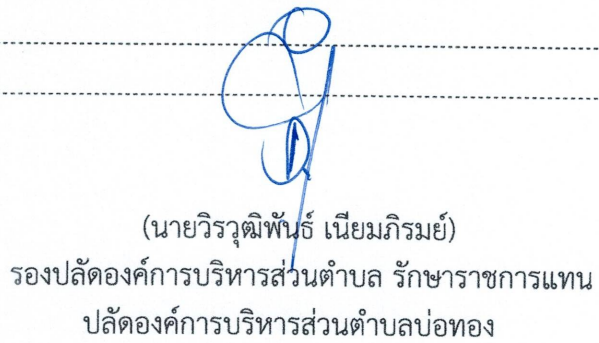 (นายวิรวุฒิพันธ์ เนียมภิรมย์)
รองปลัดองค์การบริหารส่วนตำบล รักษาราชการแทน
ปลัดองค์การบริหารส่วนตำบลบ่อทอง